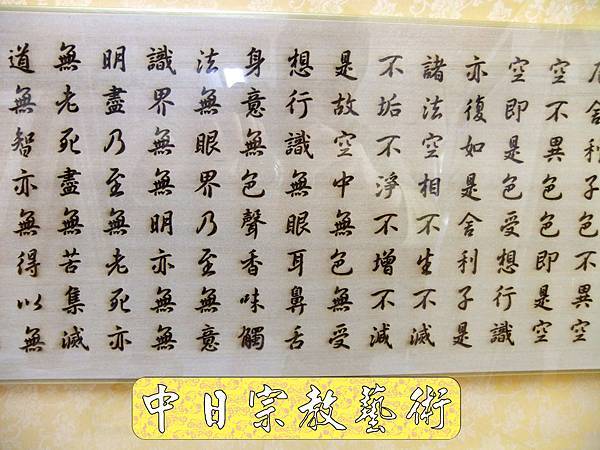 厄舍利子色不異空
空不異色色即是空
空即是色受想行識
亦復如是舍利子是
諸法空相不生不滅
不垢不淨不增不減
是故空中無色無受
想行識無眼耳鼻舌
身意無色聲香味觸
法無眼界乃至無意
識界無無明亦無無
明盡乃至無老死亦
無老死盡無苦集滅
道無智亦無得以無
中日宗教藝術